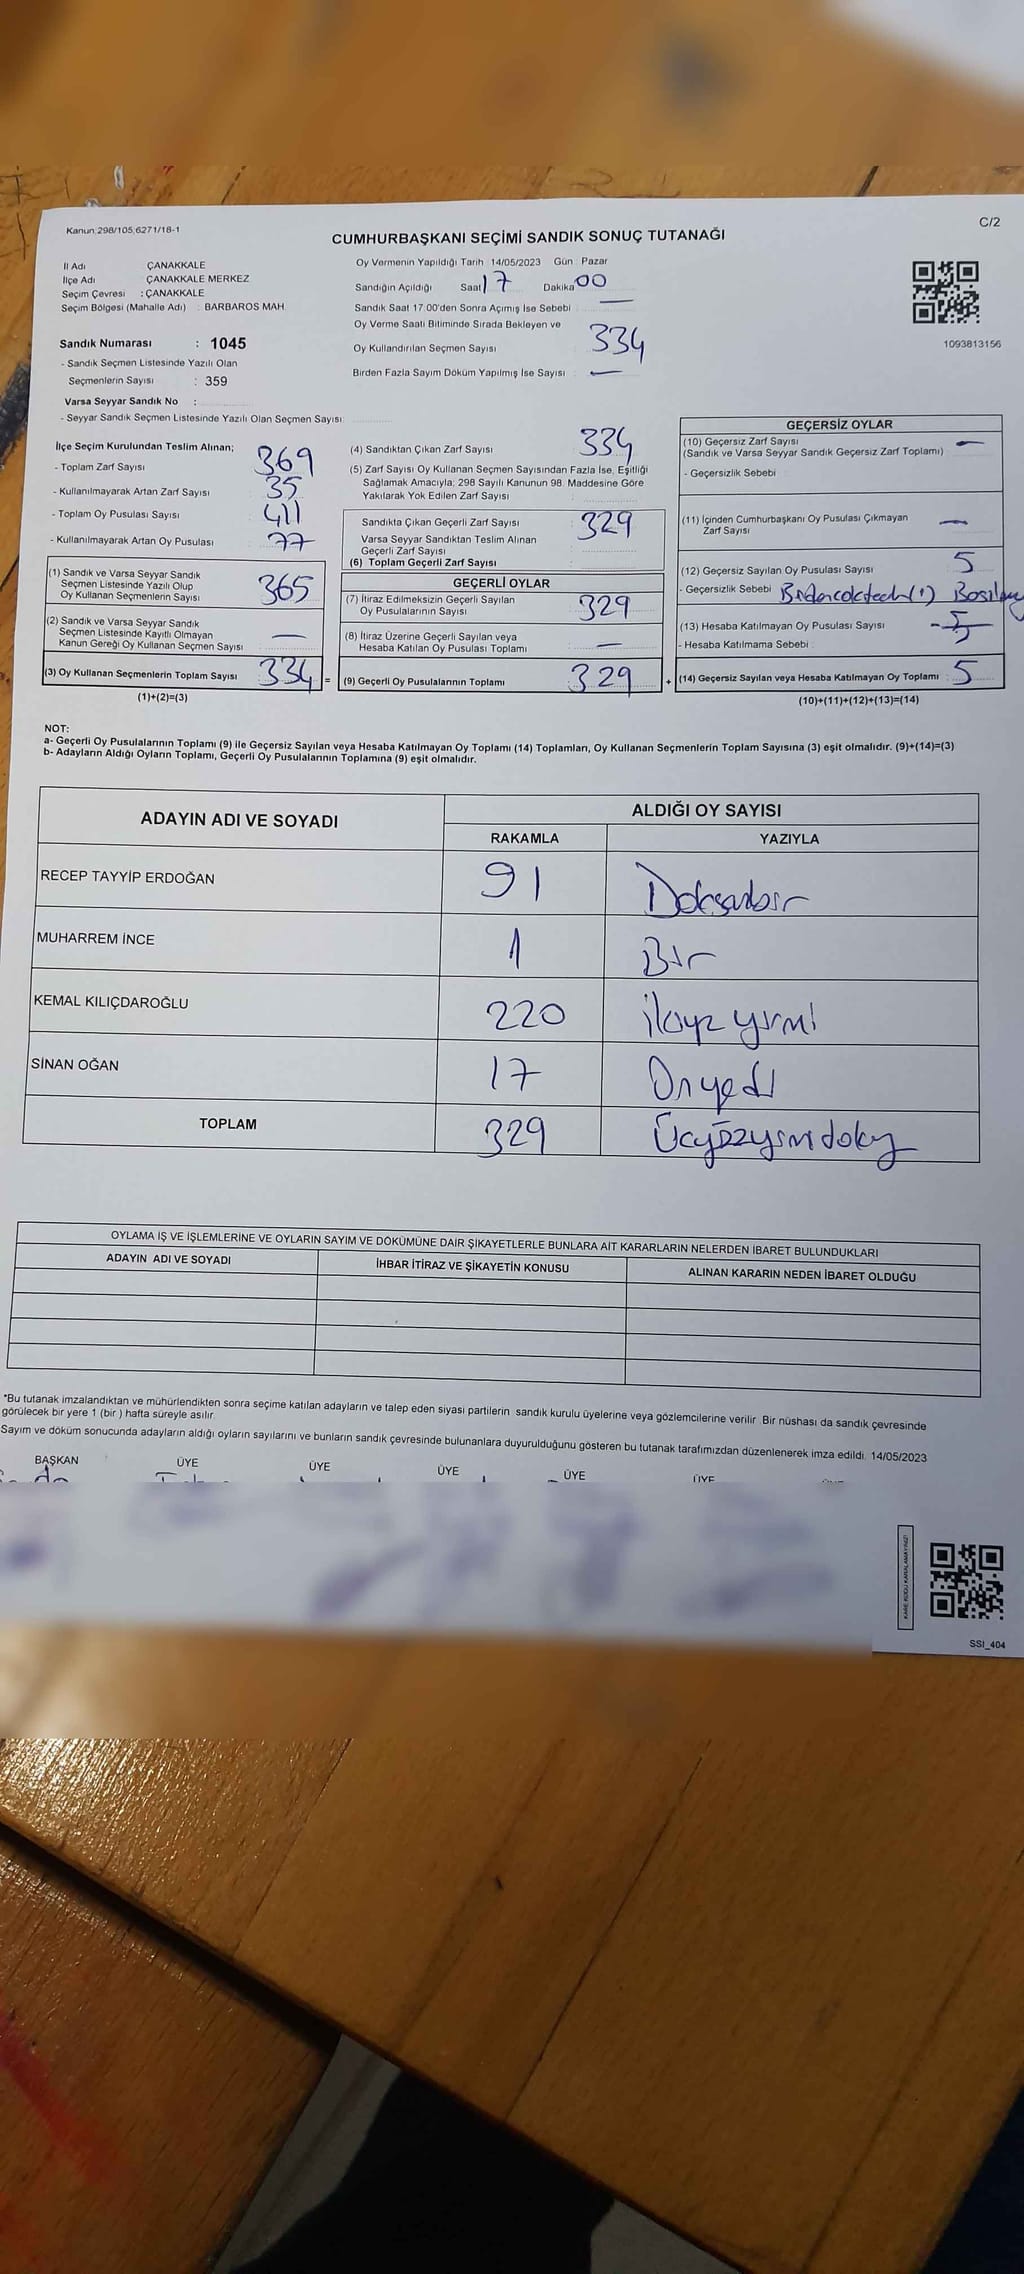 Kanun:298/105,6271/18-1
C/2
CUMHURBAŞKANI SEÇİMİ SANDIK SONUÇ TUTANAĞI
İl Adı ÇANAKKALE
İlçe Adı ÇANAKKALE MERKEZ
Seçim Çevresi : ÇANAKKALE
Seçim Bölgesi (Mahalle Adı) : BARBAROS MAH.
Sandık Numarası : 1045
- Sandık Seçmen Listesinde Yazılı Olan
Seçmenlerin Sayısı : 359
Varsa Seyyar Sandık No :
- Seyyar Sandık Seçmen Listesinde Yazılı Olan Seçmen Sayısı:
Oy Vermenin Yapıldığı Tarih : 14/05/2023 Gün : Pazar
Sandığın Açıldığı Saat 17 Dakika 00
Sandık Saat 17:00'den Sonra Açımış İse Sebebi : —
Oy Verme Saati Bitiminde Sırada Bekleyen ve
Oy Kullandırılan Seçmen Sayısı 334
Birden Fazla Sayım Döküm Yapılmış İse Sayısı : —
1093813156
İlçe Seçim Kurulundan Teslim Alınan;
- Toplam Zarf Sayısı 369
- Kullanılmayarak Artan Zarf Sayısı 35
- Toplam Oy Pusulası Sayısı 411
- Kullanılmayarak Artan Oy Pusulası 77
(1) Sandık ve Varsa Seyyar Sandık
Seçmen Listesinde Yazılı Olup
Oy Kullanan Seçmenlerin Sayısı 365
(2) Sandık ve Varsa Seyyar Sandık
Seçmen Listesinde Kayıtlı Olmayan
Kanun Gereği Oy Kullanan Seçmen Sayısı —
(3) Oy Kullanan Seçmenlerin Toplam Sayısı 334 =
(1)+(2)=(3)
(4) Sandıktan Çıkan Zarf Sayısı 334
(5) Zarf Sayısı Oy Kullanan Seçmen Sayısından Fazla İse, Eşitliği
Sağlamak Amacıyla; 298 Sayılı Kanunun 98. Maddesine Göre
Yakılarak Yok Edilen Zarf Sayısı :
Sandıkta Çıkan Geçerli Zarf Sayısı : 329
Varsa Seyyar Sandıktan Teslim Alınan
Geçerli Zarf Sayısı
(6) Toplam Geçerli Zarf Sayısı :
GEÇERLİ OYLAR
(7) İtiraz Edilmeksizin Geçerli Sayılan
Oy Pusulalarının Sayısı : 329
(8) İtiraz Üzerine Geçerli Sayılan veya
Hesaba Katılan Oy Pusulası Toplamı : —
(9) Geçerli Oy Pusulalarının Toplamı 329 +
GEÇERSİZ OYLAR
(10) Geçersiz Zarf Sayısı —
(Sandık ve Varsa Seyyar Sandık Geçersiz Zarf Toplamı)
- Geçersizlik Sebebi
(11) İçinden Cumhurbaşkanı Oy Pusulası Çıkmayan
Zarf Sayısı —
(12) Geçersiz Sayılan Oy Pusulası Sayısı 5
- Geçersizlik Sebebi
(13) Hesaba Katılmayan Oy Pusulası Sayısı
- Hesaba Katılmama Sebebi
(14) Geçersiz Sayılan veya Hesaba Katılmayan Oy Toplamı : 5
(10)+(11)+(12)+(13)=(14)
NOT:
a- Geçerli Oy Pusulalarının Toplamı (9) ile Geçersiz Sayılan veya Hesaba Katılmayan Oy Toplamı (14) Toplamları, Oy Kullanan Seçmenlerin Toplam Sayısına (3) eşit olmalıdır. (9)+(14)=(3)
b- Adayların Aldığı Oyların Toplamı, Geçerli Oy Pusulalarının Toplamına (9) eşit olmalıdır.
ADAYIN ADI VE SOYADI ALDIĞI OY SAYISI
RAKAMLA YAZIYLA
RECEP TAYYİP ERDOĞAN 91 Doksanbir
MUHARREM İNCE 1 Bir
KEMAL KILIÇDAROĞLU 220 ikiyüz yirmi
SİNAN OĞAN 17 Onyedi
TOPLAM 329 Üçyüzyirmidokuz
OYLAMA İŞ VE İŞLEMLERİNE VE OYLARIN SAYIM VE DÖKÜMÜNE DAİR ŞİKAYETLERLE BUNLARA AİT KARARLARIN NELERDEN İBARET BULUNDUKLARI
ADAYIN ADI VE SOYADI İHBAR İTİRAZ VE ŞİKAYETİN KONUSU ALINAN KARARIN NEDEN İBARET OLDUĞU
*Bu tutanak imzalandıktan ve mühürlendikten sonra seçime katılan adayların ve talep eden siyasi partilerin sandık kurulu üyelerine veya gözlemcilerine verilir. Bir nüshası da sandık çevresinde
görülecek bir yere 1 (bir ) hafta süreyle asılır.
Sayım ve döküm sonucunda adayların aldığı oyların sayılarını ve bunların sandık çevresinde bulunanlara duyurulduğunu gösteren bu tutanak tarafımızdan düzenlenerek imza edildi. 14/05/2023
BAŞKAN ÜYE ÜYE ÜYE ÜYE ÜYE
KARE KODU KARALAMAYINIZ!
SSI_404